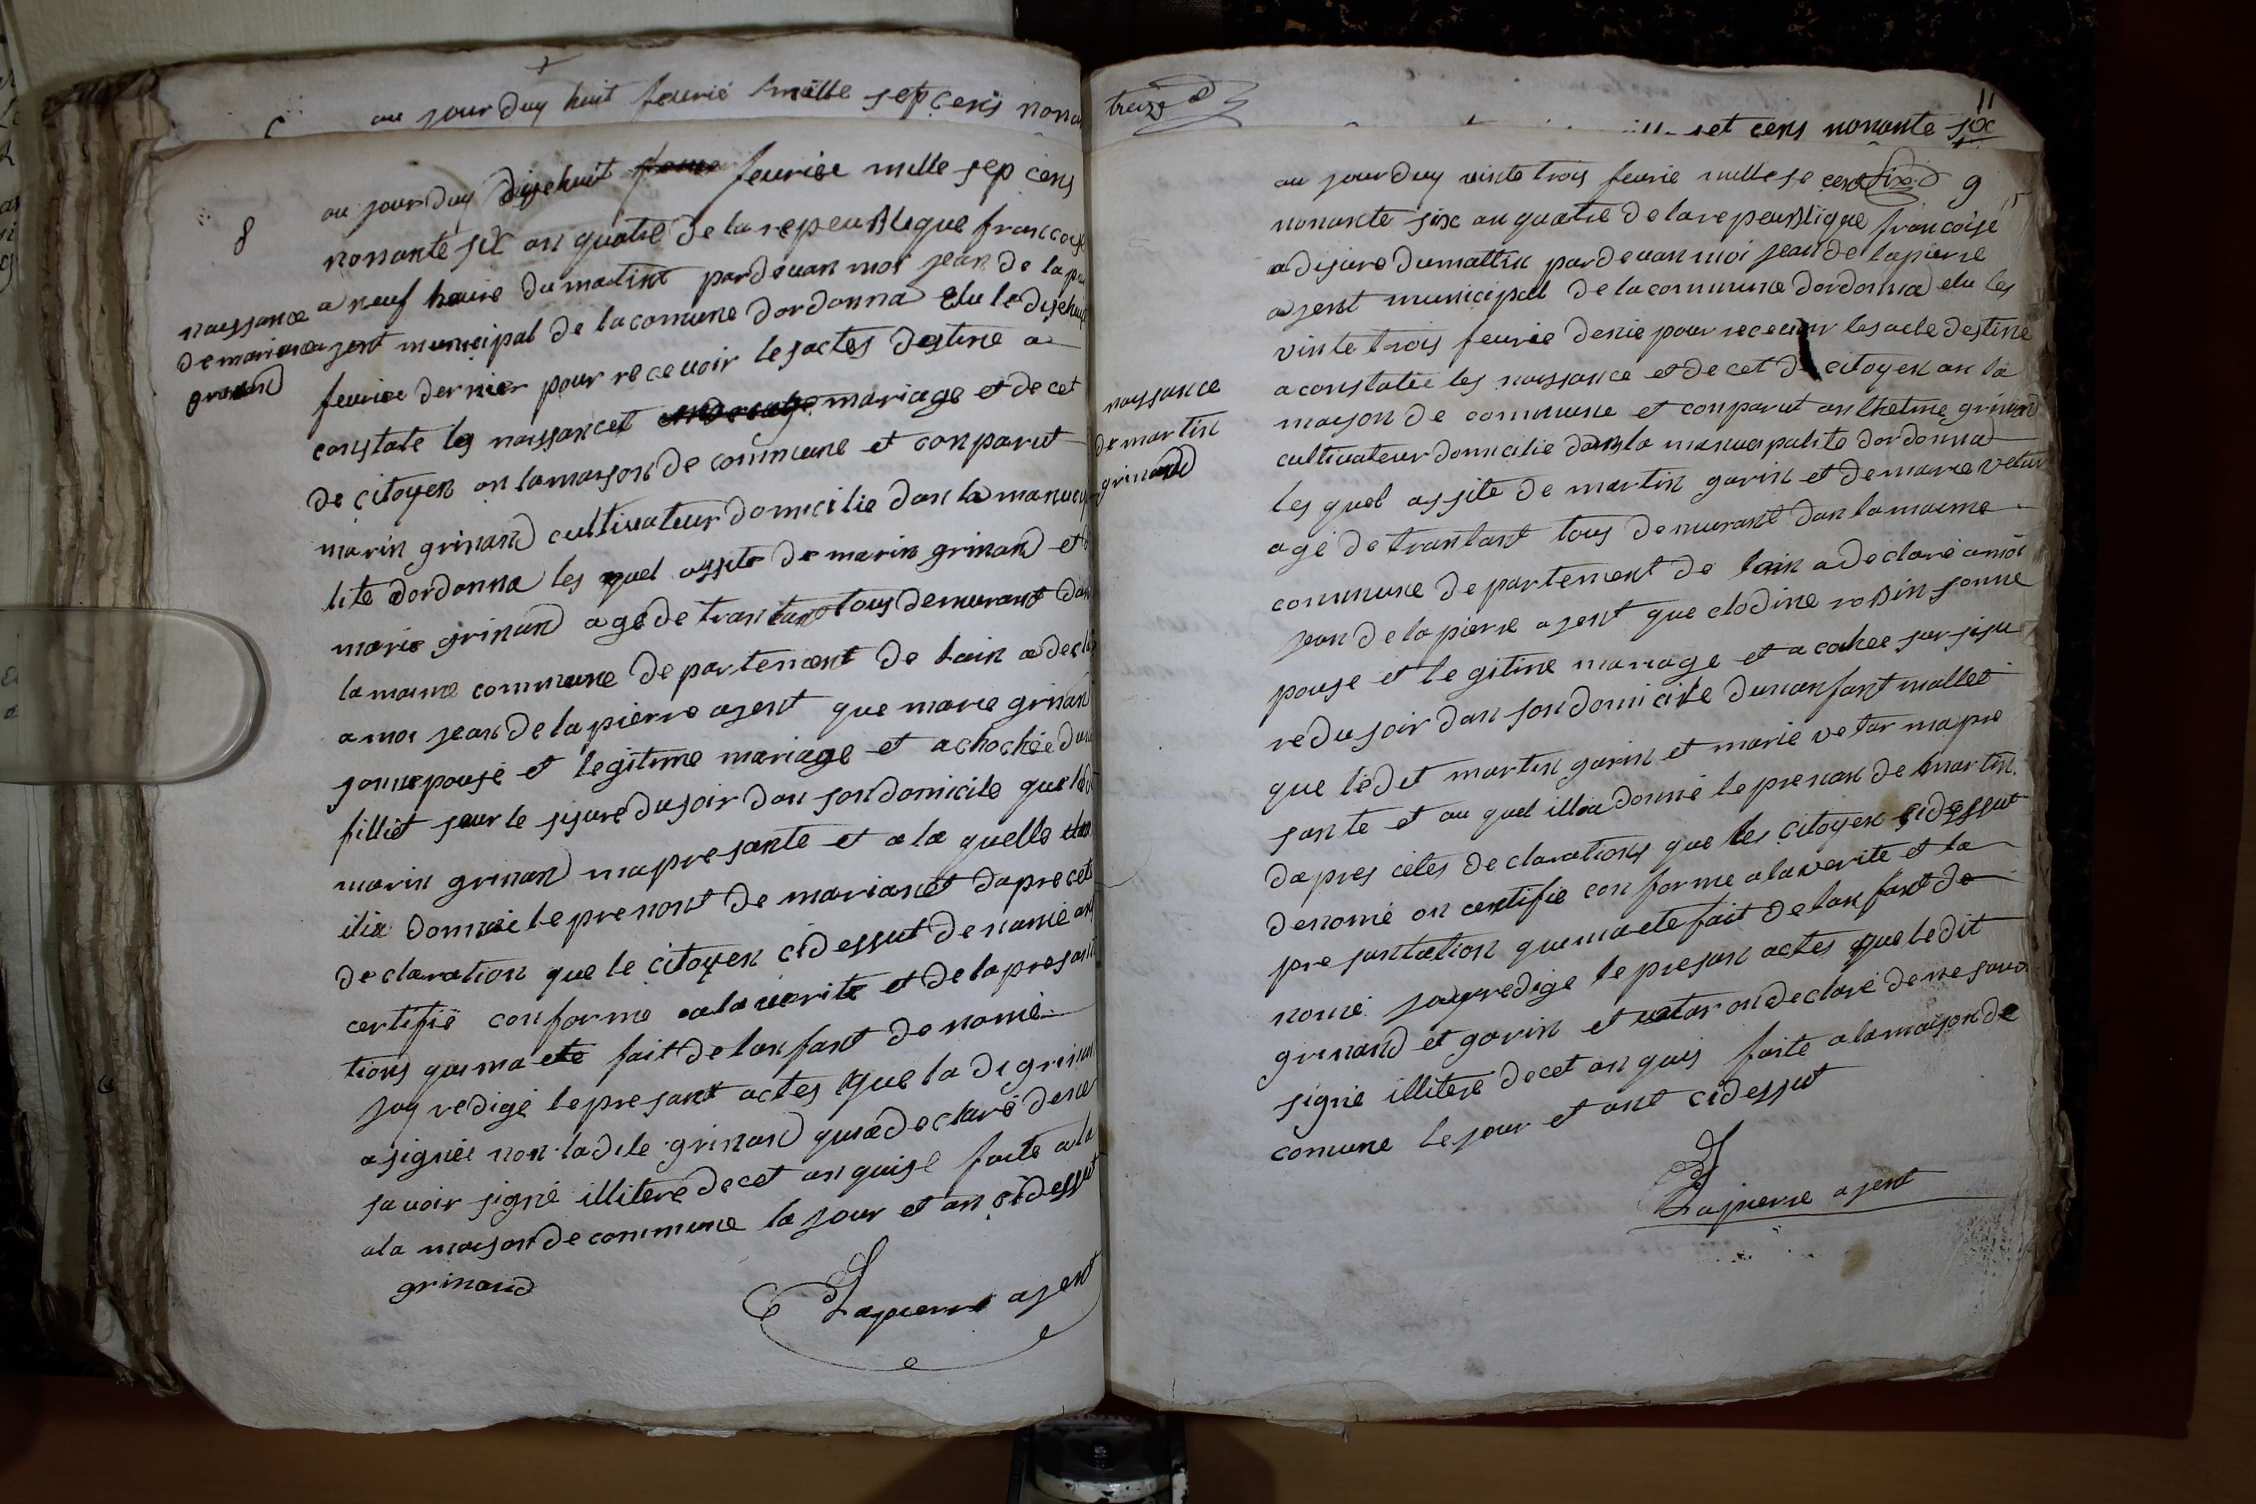 au jourduy huit feurié mille sepcens nonan
8
naissance
de marianet
grinand
au jourduy disehuit feuriee mille sep cens
nonante six an quatre de la repeublique francoise
a neuf heure du matint pardeuan moi jean de la pie
agent municipal de la comune dordonna elu le disehuit
feuriee dernier pour recevoir les actes destine a
constate les naissancet mariage et de cet
de citoyen an la maison de commune et conparut
marin grinand cultivateur domicilie dan la manucip
lite dordonna les quel assite de marin grinand et
marie grinand age de trantant tous demurant dan
la maime commune departement de lain a decla
a moi jean de la pierre agent que marie grinand
sonnepouse et legitime mariage et achochée dune
filliet seur le sijure du soir dan son domicile que ledi
marin grinand mapresante et a la quelle
ilia donnée le prenont de marianet dapre cet
declaration que le citoyen cidessut denomé an
certifié conforme a la verite et de la presanta
tions qui ma ete fait de lanfant denomé
jay redigé le presant actes que la di grinan
a signée non ladite grinand qui a declaré dene
savoir signé illitere decet an quise faite a la
a la maison de commune le jour et an cidessut
grinand
Lapierre agent
treize
11
set cens nonante six
9
naissance
de martin
grinand
au jourduy vinte trois feurie mille se cens
nonante six an quatre de la repeublique francoise
a disure du mattin pardeuan moi jean de lapierre
agent municipal de la commune dordonna elu les
vinte trois feurie denie pour recevoir les acte destine
a constatée les naissance et de cet de citoyen an la
maison de commune et conparut anthelme grinand
cultivateur domicilie dans la manucipalite dordonna
les quel assite de martin garin et de marie vetar
agé de trantant tous demurant dan la maime
commune departement de lain a declaré a moi
jean de la pierre agent que clodine robin sonne
pouse et legitime mariage et a cochee sur sisu
re du soir dan son domicile dunanfant mallet
que ledit martin garin et marie vetar mapre
sante et au quel illia donné le prenon de martin
dapres cetes declarations que les citoyen cidessut
denomé on certifie conforme a la verite et la
presantation que ma ete fait de lanfant de
nomé jay redige le presan actes que ledit
grinand et garin et vetar on declaré de ne savo
signé illitere decet an quis faite a la maison de
comune le jour et ant cidessut
Lapierre agent